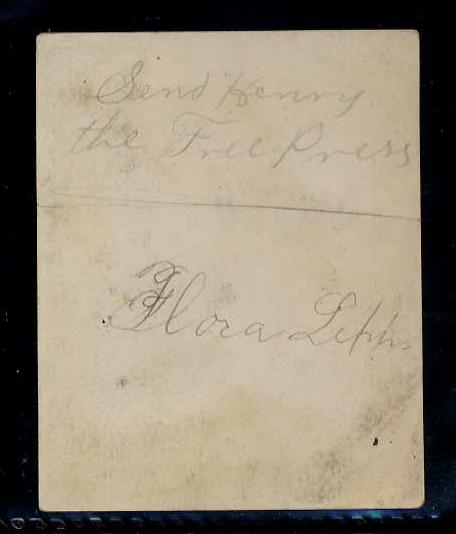 Send Henry
the Free Press
Flora Lepp.